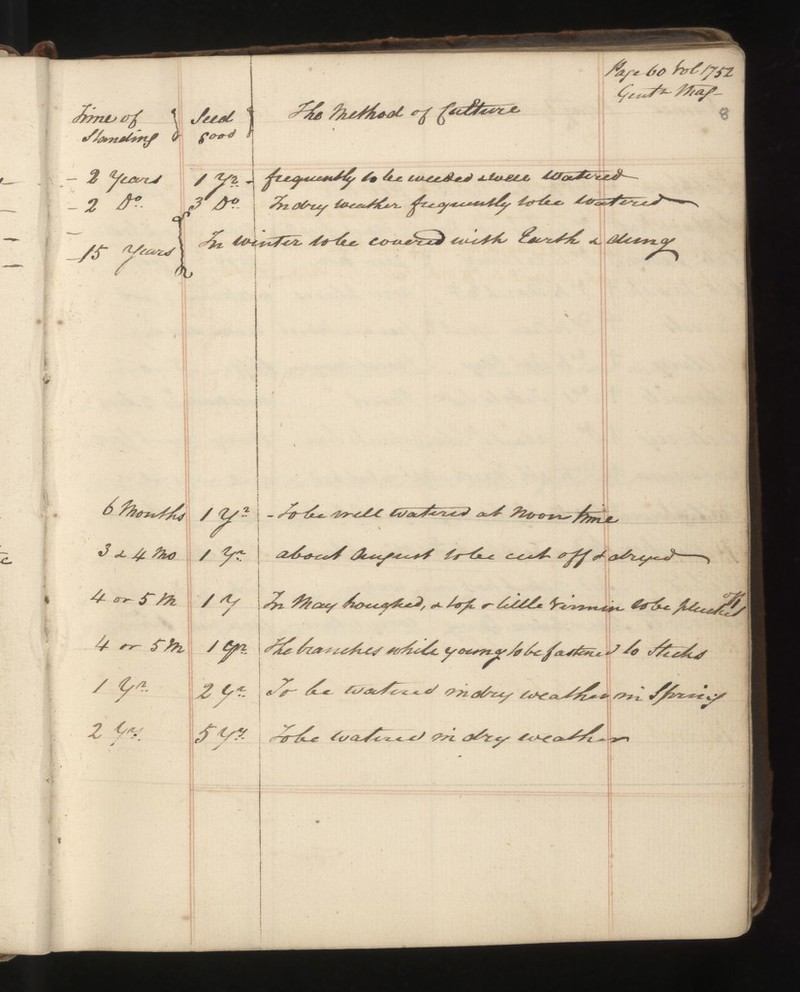 Page 60 Vol 1752
Gentn Mag
8
Time of Standing } Seed good } The Method of Culture
- 2 Years 1 Yr - frequently to be weeded & well watered
- 2 Do. 3 Do In dry weather frequently to be watered
- 15 Years In winter to be covered with Earth & dung
6 Months 1 Yr - To be well watered at Noon time
3 & 4 Mo 1 Yr about August to be cut off & dryed
4 or 5 M 1 Y In May houghed, & top & little vermin to be plucked off
4 or 5 M 1 Yr The branches while young to be fastened to Sticks
1 Yr. 2 Yr To be watered in dry weather in Spring
2 Yrs. 5 Yrs To be watered in dry weather